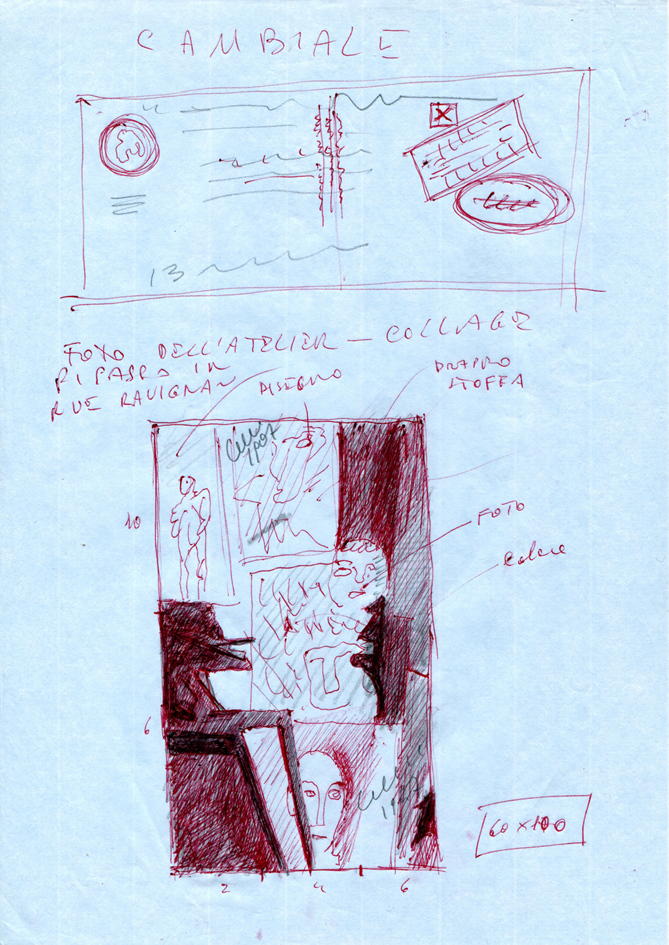 CAMBIALE
13
FOTO DELL'ATELIER – COLLAGE
PICASSO IN
RUE RAVIGNAN
DISEGNO
DRAPPO
STOFFA
1907
10
FOTO
6
60x100
2 4 6